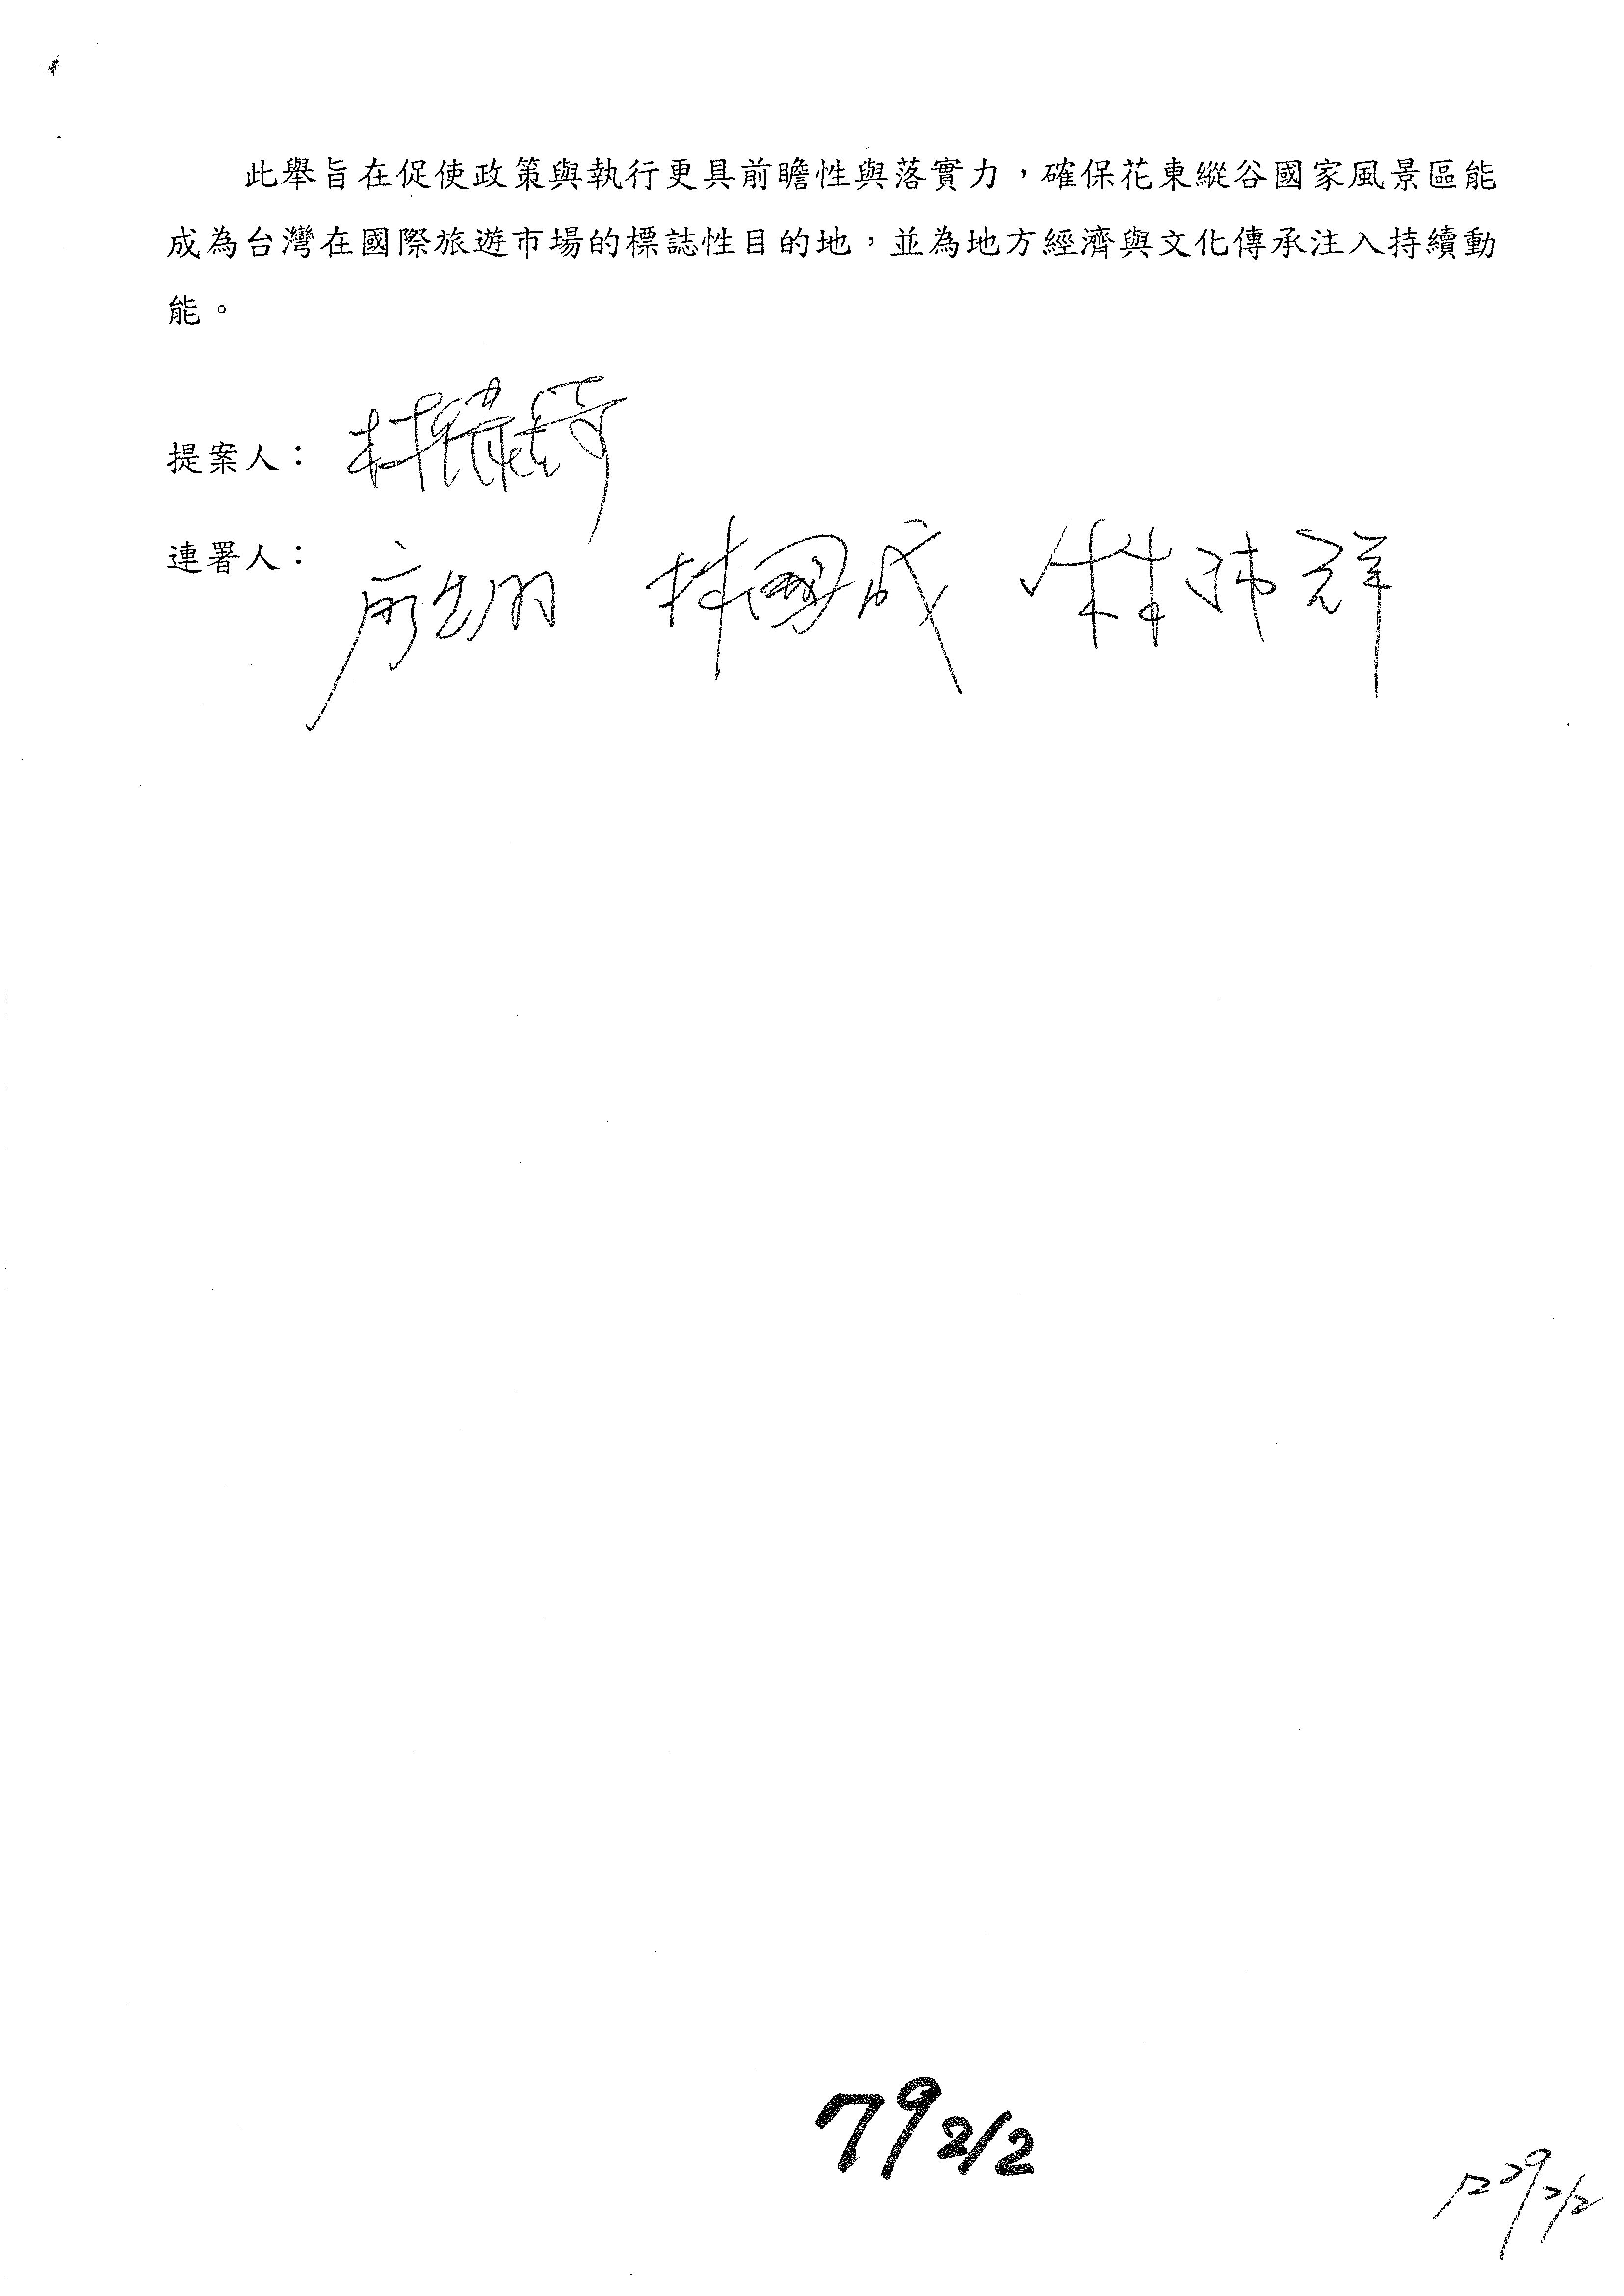 此舉旨在促使政策與執行更具前瞻性與落實力，確保花東縱谷國家風景區能
成為台灣在國際旅遊市場的標誌性目的地，並為地方經濟與文化傳承注入持續動
能。
提案人：
連署人：林國成
79 2/2